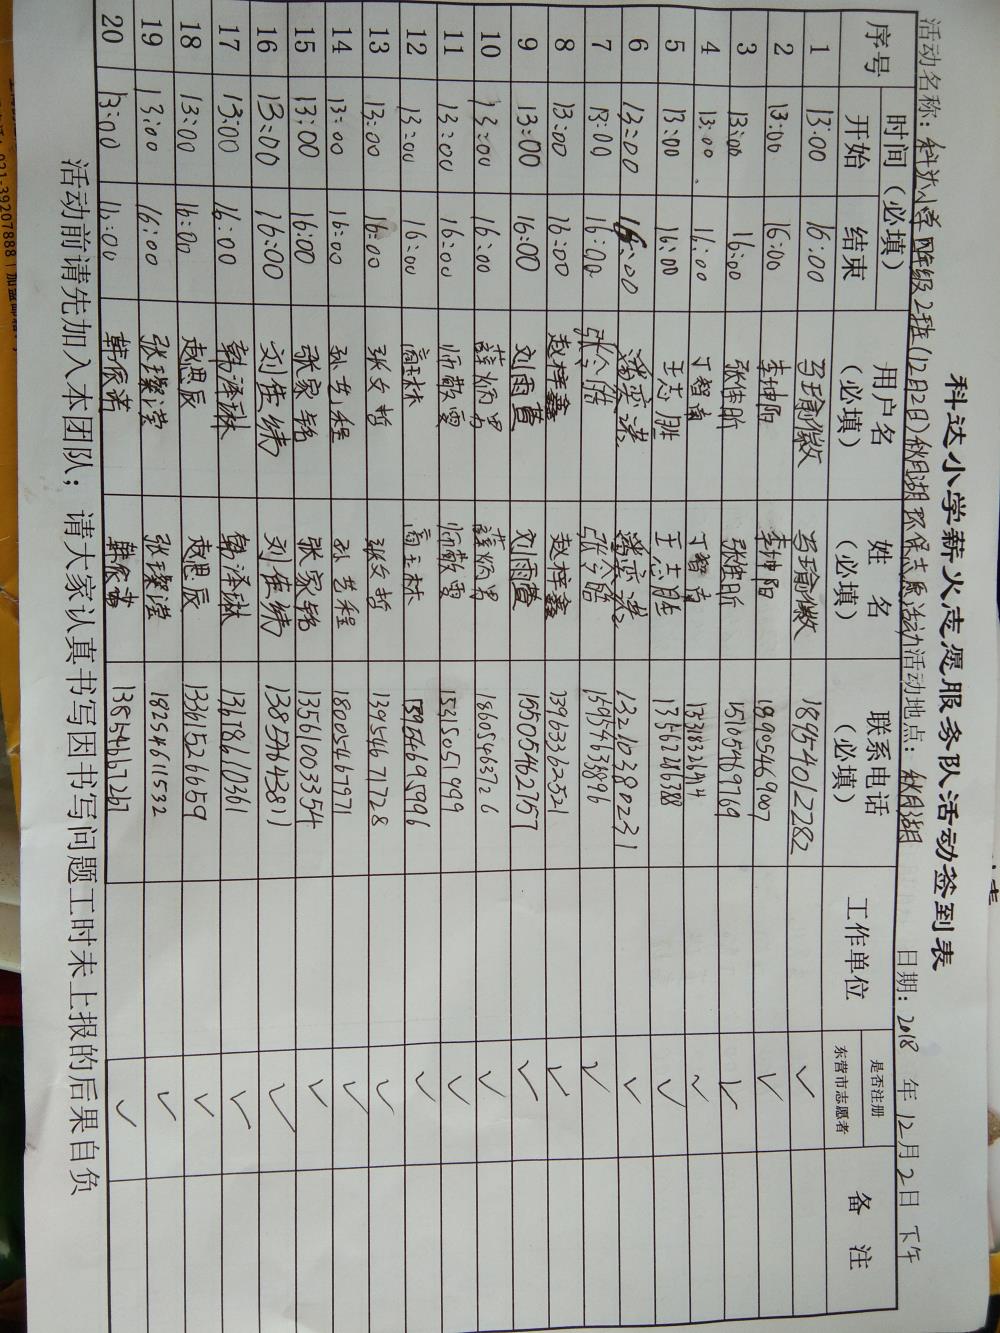 科达小学薪火志愿服务队活动签到表
活动名称：科达小学四年级2班(12月2日)秋月湖环保志愿活动 活动地点：秋月湖 日期：2018年12月2日 下午
序号 时间（必填） 用户名（必填） 姓名（必填） 联系电话（必填） 工作单位 是否注册东营市志愿者 备注
开始 结束
1 13:00 16:00 18854012282 ✓
2 13:00 16:00 李坤阳 李坤阳 19905469007 ✓
3 13:00 16:00 张佳昕 张佳昕 15105469769 ✓
4 13:00 16:00 丁智 丁智 ✓
5 13:00 16:00 王志胜 王志胜 13562216388 ✓
6 13:00 16:00 潘奕 潘奕 13210380231 ✓
7 13:00 16:00 张今皓 张今皓 15954638896 ✓
8 13:00 16:00 赵梓鑫 赵梓鑫 13963362521 ✓
9 13:00 16:00 刘雨萱 刘雨萱 15505462757 ✓
10 13:00 16:00 薛炳男 薛炳男 18605463726 ✓
11 13:00 16:00 师歆雯 师歆雯 15315051999 ✓
12 13:00 16:00 高玉林 高玉林 13954695996 ✓
13 13:00 16:00 张文哲 张文哲 13954671728 ✓
14 13:00 16:00 孙艺程 孙艺程 18005467971 ✓
15 13:00 16:00 张家铭 张家铭 13561003354 ✓
16 13:00 16:00 刘佳绮 刘佳绮 13854642811 ✓
17 13:00 16:00 韩泽琳 韩泽琳 13678610361 ✓
18 13:00 16:00 赵思辰 赵思辰 13361526659 ✓
19 13:00 16:00 张璨滢 张璨滢 18254611532 ✓
20 13:00 16:00 韩依诺 韩依诺 13854167267 ✓
活动前请先加入本团队；请大家认真书写因书写问题工时未上报的后果自负
021-39207888